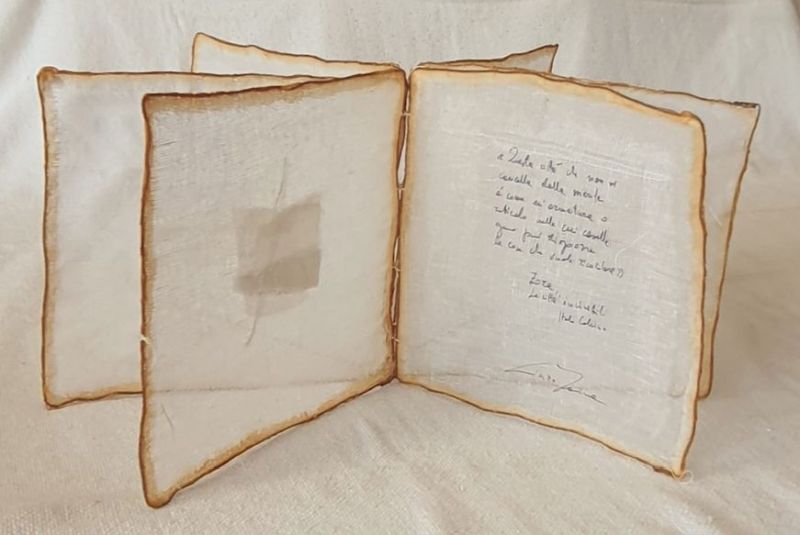 « Questa città che non si
cancella dalla mente
è come un'armatura o
reticolo nelle cui caselle
ognuno può disporre
le cose che vuole ricordare»
Zora,
Le città invisibili
Italo Calvino